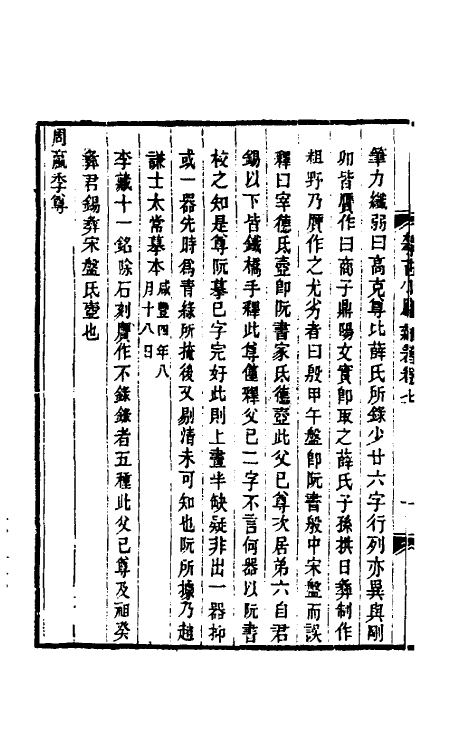 筆力纖弱曰高克尊比薛氏所錄少廿六字行列亦異與剛
卯皆贋作曰商子鼎陽文實卽取之薛氏子孫拱日彝制作
粗野乃贋作之尤劣者曰殷甲午盤卽阮書般中宋盤而誤
釋曰宰德氏壺卽阮書家氏德壺此父已尊次居弟六自君
錫以下皆鐵橋手釋此尊僅釋父已二字不言何器以阮書
校之知是尊阮摹已字完好此則上畫半缺疑非出一器抑
或一器先時爲青綠所掩後又剔清未可知也阮所據乃趙
謙士太常摹本咸豐四年八月十八日
李戴十一銘除石刻贋作不錄錄者五種此父已尊及祖癸
彝君錫彝宋盤氏壺也
周 季尊